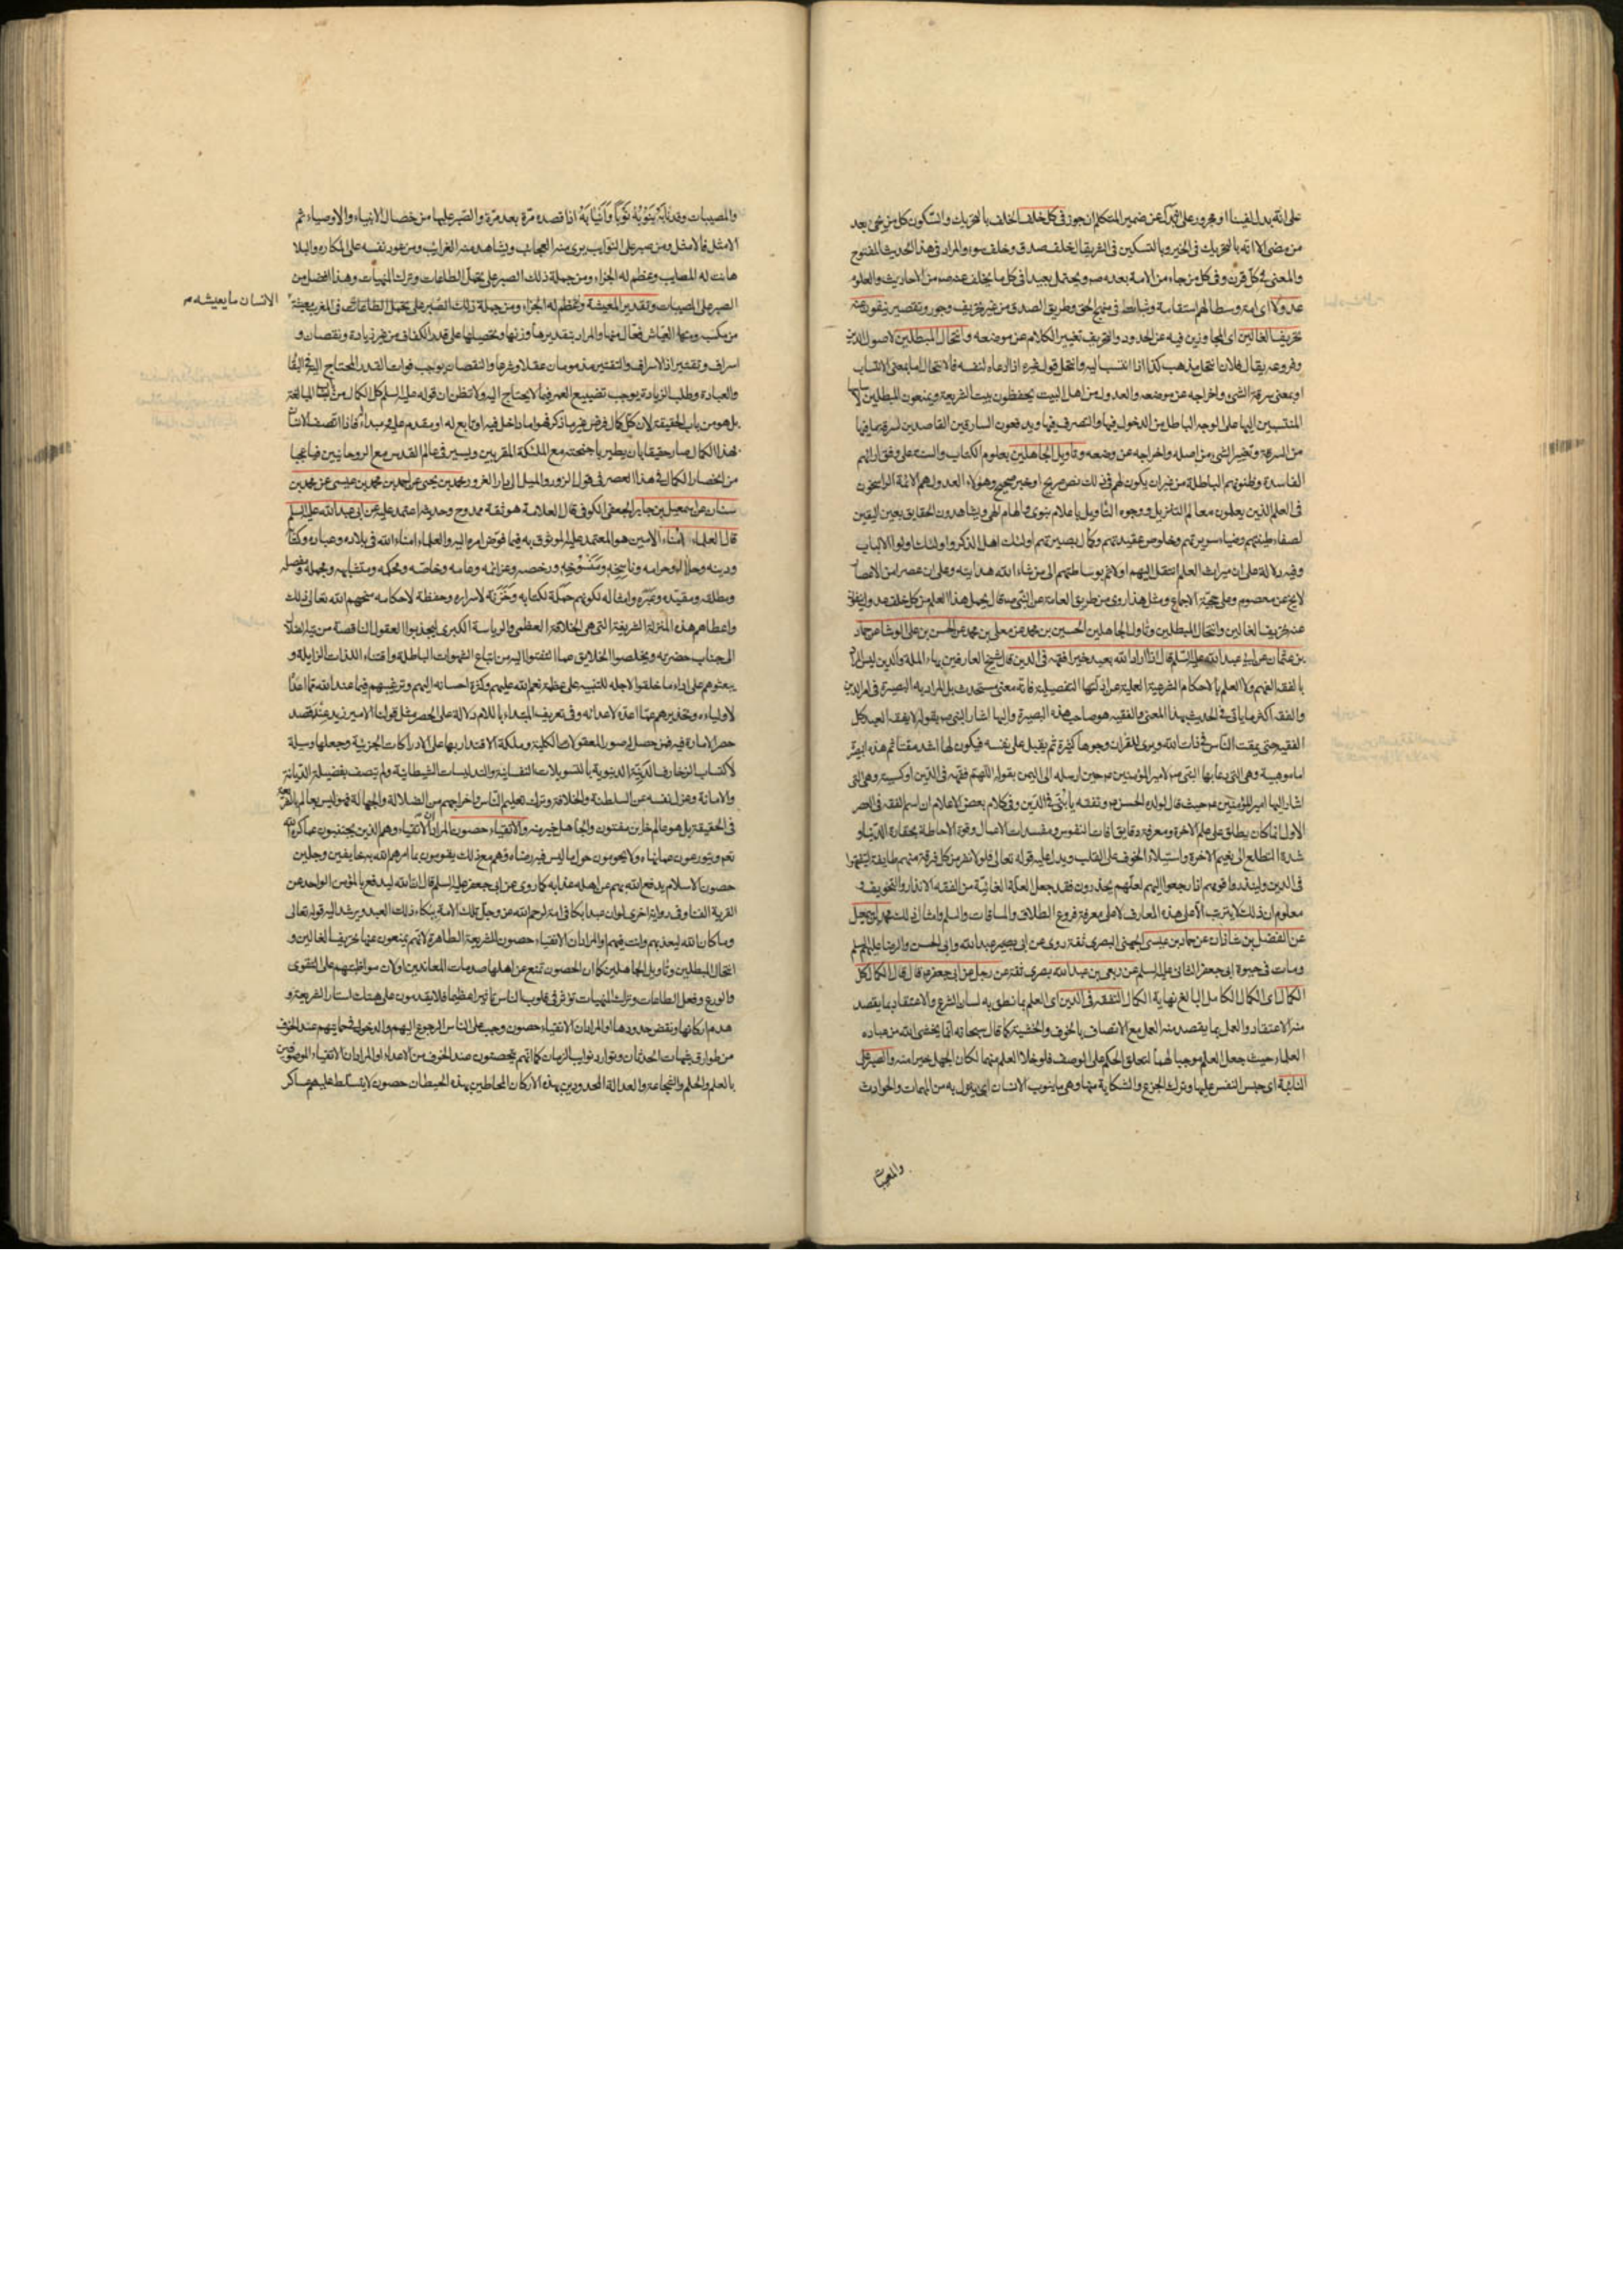 على انه بدل لفينا او مجرور على انه بدل عن ضمير المتكلم ان جوز في كل خلف الخلف بالتحريك والسكون كل من يجيء بعد
من مضى الا انه بالتحريك في الخير وبالتسكين في الشر يقال خلف صدق وخلف سوء والمراد في هذا الحديث المفتوح
والمعنى في كل قرن وفي كل من جاء من الامة بعده ص ويحتمل بعيدا في كل ما يخلف عنه ص من الاحاديث والعلوم
عدولا اي امة وسطا لهم استقامة وثبات في منهج الحق وطريق الصدق من غير تحريف وجور وتقصير ينفون عنه
تحريف الغالين اي المجاوزين فيه عن الحدود والتحريف تغيير الكلام عن موضعه وانتحال المبطلين لاصول الدين
وفروعه يقال فلان انتحل مذهب كذا اذا انتسب اليه وانتحل قول غيره اذا ادعاه لنفسه فالانتحال اما بمعنى الانتساب
او بمعنى سرقة الشيء واخراجه عن موضعه والعدول من اهل البيت يحفظون بيت الشريعة ويمنعون المبطلين
المنتسبين اليها على الوجه الباطل من الدخول فيها والتصرف فيها ويدفعون السارقين القاصدين لسرقة ما فيها
من السرقة وتغيير الشيء من اصله واخراجه عن وضعه وتاويل الجاهلين بعلوم الكتاب والسنة على وفق ارائهم
الفاسدة وظنونهم الباطلة من غير ان يكون لهم في ذلك نص صريح او خبر صحيح وهؤلاء العدول هم الائمة الراسخون
في العلم الذين يعلمون معالم التنزيل ووجوه التاويل باعلام نبوي والهام الهي ويشاهدون الحقايق بعين اليقين
لصفاء طينتهم وضياء سريرتهم وخلوص عقيدتهم وكمال بصيرتهم اولئك اهل الذكر واولئك اولوا الالباب
وفيه دلالة على ان ميراث العلم انتقل اليهم اولا ثم بوساطتهم الى من شاء الله هدايته وعلى ان عصرا من الاعصار
لا يخ عن معصوم وعلى حجية الاجماع ومثل هذا روي من طريق العامة عن النبي ص قال يحمل هذا العلم من كل خلف عدوله ينفون
عنه تحريف الغالين وانتحال المبطلين وتاويل الجاهلين الحسين بن محمد عن معلى بن محمد عن الحسن بن علي الوشا عن حماد
بن عثمان عن ابي عبد الله عليه السلم قال اذا اراد الله بعبد خيرا فقهه في الدين قال شيخ العارفين بهاء الملة والدين ليس المراد
بالفقه الفهم ولا العلم بالاحكام الشرعية العملية عن ادلتها التفصيلية فانه معنى مستحدث بل المراد به البصيرة في امر الدين
والفقه اكثر ما ياتي في الحديث بهذا المعنى والفقيه هو صاحب هذه البصيرة واليها اشار النبي ص بقوله لا يفقه العبد كل
الفقه حتى يمقت الناس في ذات الله ويرى للقران وجوها كثيرة ثم يقبل على نفسه فيكون لها اشد مقتا ثم هذه البصيرة
اما موهبية وهي التي دعا بها النبي ص لامير المؤمنين ع حين ارسله الى اليمن بقوله اللهم فقهه في الدين او كسبية وهي التي
اشار اليها امير المؤمنين ع حيث قال لولده الحسن ع وتفقه يا بني في الدين وفي كلام بعض الاعلام ان اسم الفقه في العصر
الاول انما كان يطلق على علم الاخرة ومعرفة دقايق افات النفوس ومفسدات الاعمال وقوة الاحاطة بحقارة الدنيا و
شدة التطلع الى نعيم الاخرة واستيلاء الخوف على القلب ويدل عليه قوله تعالى فلولا نفر من كل فرقة منهم طايفة ليتفقهوا
في الدين ولينذروا قومهم اذا رجعوا اليهم لعلهم يحذرون فقد جعل العلة الغائية من الفقه الانذار والتخويف و
معلوم ان ذلك لا يترتب الا على هذه المعارف لا على معرفة فروع الطلاق والمساقات والسلم وامثال ذلك محمد بن اسمعيل
عن الفضل بن شاذان عن حماد بن عيسى الجهني البصري ثقة روى عن ابي بصير عبد الله وابي الحسن والرضا عليهم السلم
ومات في حيوة ابي جعفر الثاني عليه السلم عن ربعي بن عبد الله بصري ثقة عن رجل عن ابي جعفر ع قال قال الكمال كل
الكمال اي الكمال الكامل البالغ نهاية الكمال التفقه في الدين اي العلم بما نطق به لسان الشرع والاعتقاد بما يقصد
منه الاعتقاد والعمل بما يقصد منه العمل مع الاتصاف بالخوف والخشية كما قال سبحانه انما يخشى الله من عباده
العلماء حيث جعل العلم موجبا لهما لتعلق الحكم على الوصف فلو خلا العلم منهما لكان الجهل خيرا منه والصبر على
النائبة اي حبس النفس عليها وترك الجزع والشكاية منها وهي ما ينوب الانسان اي ينزل به من المهمات والحوادث
والمصيبات
والمصيبات وقد نابه ينوبه نوبا وانتابه اذا قصده مرة بعد مرة والصبر عليها من خصال الانبياء والاوصياء ثم
الامثل فالامثل ومن صبر على النوايب يرى منه العجايب ويشاهد منه الغرايب ومن عود نفسه على المكاره والبلا
هانت له المصايب وعظم له الجزاء ومن جملة ذلك الصبر على تحمل الطاعات وترك المنهيات وهذا افضل من
الصبر على المصيبات وتقدير المعيشة وعظم له الجزاء ومن جملة ذلك الصبر على تحمل الطاعات في المغرب معيشة
الانسان ما يعيشه م
من مكسب ومنها العياش فعال منها والمراد بتقديرها وزنها وتحصيلها على قدر الكفاف من غير زيادة ونقصان و
اسراف وتقتير اذ الاسراف والتقتير مذمومان عقلا وشرعا والنقصان يوجب فوات القدر المحتاج اليه في البقاء
والعبادة وطلب الزيادة يوجب تضييع العمر فيما لا يحتاج اليه ولا تظن ان قوله عليه السلم كل الكمال من باب المبالغة
بل هو من باب الحقيقة لان كل كمال فرض غير ما ذكر فهو اما داخل فيه او تابع له او مقدم عليه ومبداء فاذا اتصف الانسان
بهذا الكمال صار حقيقا بان يطير باجنحته مع الملئكة المقربين ويسير في عالم القدس مع الروحانيين فيا عجبا
من انحصار الكمال في هذا العصر في قول الزور والميل الى دار الغرور محمد بن يحيى عن احمد بن محمد بن عيسى عن محمد بن
سنان عن اسمعيل بن جابر الجعفي الكوفي قال العلامة هو ثقة ممدوح وحديثه اعتمد عليه عن ابي عبد الله عليه السلم
قال العلماء امناء الامين هو المعتمد عليه الموثوق به فيما فوض امره اليه والعلماء امناء الله في بلاده وعباده وكتابه
ودينه وحلاله وحرامه وناسخه ومنسوخه ورخصه وعزائمه وعامه وخاصه ومحكمه ومتشابهه ومجمله ومفصله
ومطلقه ومقيده وعبره وامثاله لكونهم حملة لكتابه وخزنة لاسراره وحفظة لاحكامه منحهم الله تعالى ذلك
واعطاهم هذه المنزلة الشريفة التي هي الخلافة العظمى والرياسة الكبرى ليجذبوا العقول الناقصة من تيه الضلالة
الى جناب حضرته ويخلصوا الخلايق عما التفتوا اليه من اتباع الشهوات الباطلة واقتناء اللذات الزايلة و
يبعثوهم على اداء ما خلقوا لاجله للتنبيه على عظمة نعم الله عليهم وكثرة احسانه اليهم وترغيبهم فيما عند الله مما اعد
لاوليائه وتحذيرهم عما اعده لاعدائه وفي تعريف المبتداء باللام دلالة على الحصر مثل قولك الامير زيد عند قصد
حصر الامارة فيه فمن حصل له صور المعقولات الكلية وملكة الاقتدار بها على الادراكات الجزئية وجعلها وسيلة
لاكتساب الزخارف الدنية الدنيوية بالتسويلات النفسانية والتدليسات الشيطانية ولم يتصف بفضيلة الديانة
والامانة وعزل نفسه عن السلطنة والخلافة وترك تعليم الناس واخراجهم من الضلالة والجهالة فهو ليس بعالم بالشريعة
في الحقيقة بل هو عالم خاين مفتون والجاهل خير منه والاتقياء حصون المراد ان الاتقياء وهم الذين يجتنبون عما كره الله
نعم ويتورعون عما نهاه ولا يحومون حول ما ليس فيه رضاه وهم مع ذلك يقومون بما امرهم الله به خايفين وجلين
حصون الاسلام يدفع الله بهم عن اهله عذابه كما روي عن ابي جعفر عليه السلم قال ان الله ليدفع بالمؤمن الواحد عن
القرية الفناء وفي رواية اخرى لو ان عبدا بكا في امة لرحم الله عز وجل تلك الامة ببكاء ذلك العبد ويرشد اليه قوله تعالى
وما كان الله ليعذبهم وانت فيهم او المراد ان الاتقياء حصون للشريعة الطاهرة لانهم يمنعون عنها تحريف الغالين و
انتحال المبطلين وتاويل الجاهلين كما ان الحصون تمنع عن اهلها صدمات المعاندين او لان مواظبتهم على التقوى
والورع وفعل الطاعات وترك المنهيات تؤثر في قلوب الناس تاثيرا عظيما فلا يقدمون على هتك استار الشريعة و
هدم اركانها ونقض حدودها او المراد ان الاتقياء حصون وجب على الناس الرجوع اليهم والدخول في حمايتهم عند الخوف
من طوارق شبهات الحدثان وتوارد نوايب الزمان كما انهم يتحصنون عند الخوف من الاعداء او المراد ان الاتقياء الموصوفين
بالعلم والحلم والشجاعة والعدالة المحدودين بهذه الاركان المحاطين بهذه الحيطان حصون لا يتسلط عليهم عساكر